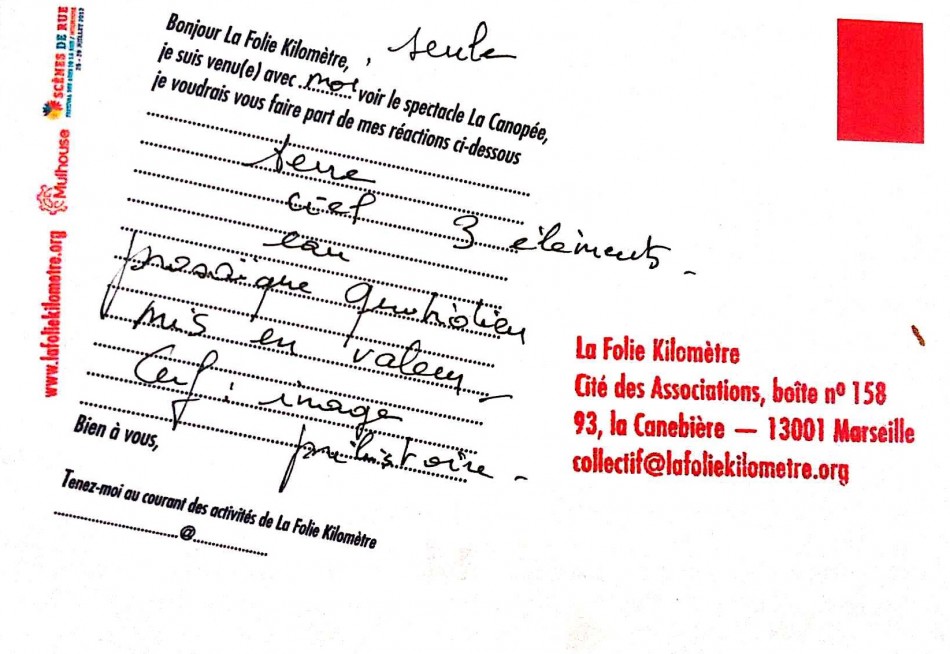 SCÈNES DE RUE
Mulhouse
www.lafoliekilometre.org
Bonjour La Folie Kilomètre, , seule
je suis venu(e) avec moi voir le spectacle La Canopée,
je voudrais vous faire part de mes réactions ci-dessous
terre
ciel 3 éléments -
eau
prosaïque quotidien
mis en valeur -
Cerf : image
préhistoire -
Bien à vous,
Tenez-moi au courant des activités de La Folie Kilomètre
@
La Folie Kilomètre
Cité des Associations, boîte nº 158
93, la Canebière — 13001 Marseille
collectif@lafoliekilometre.org